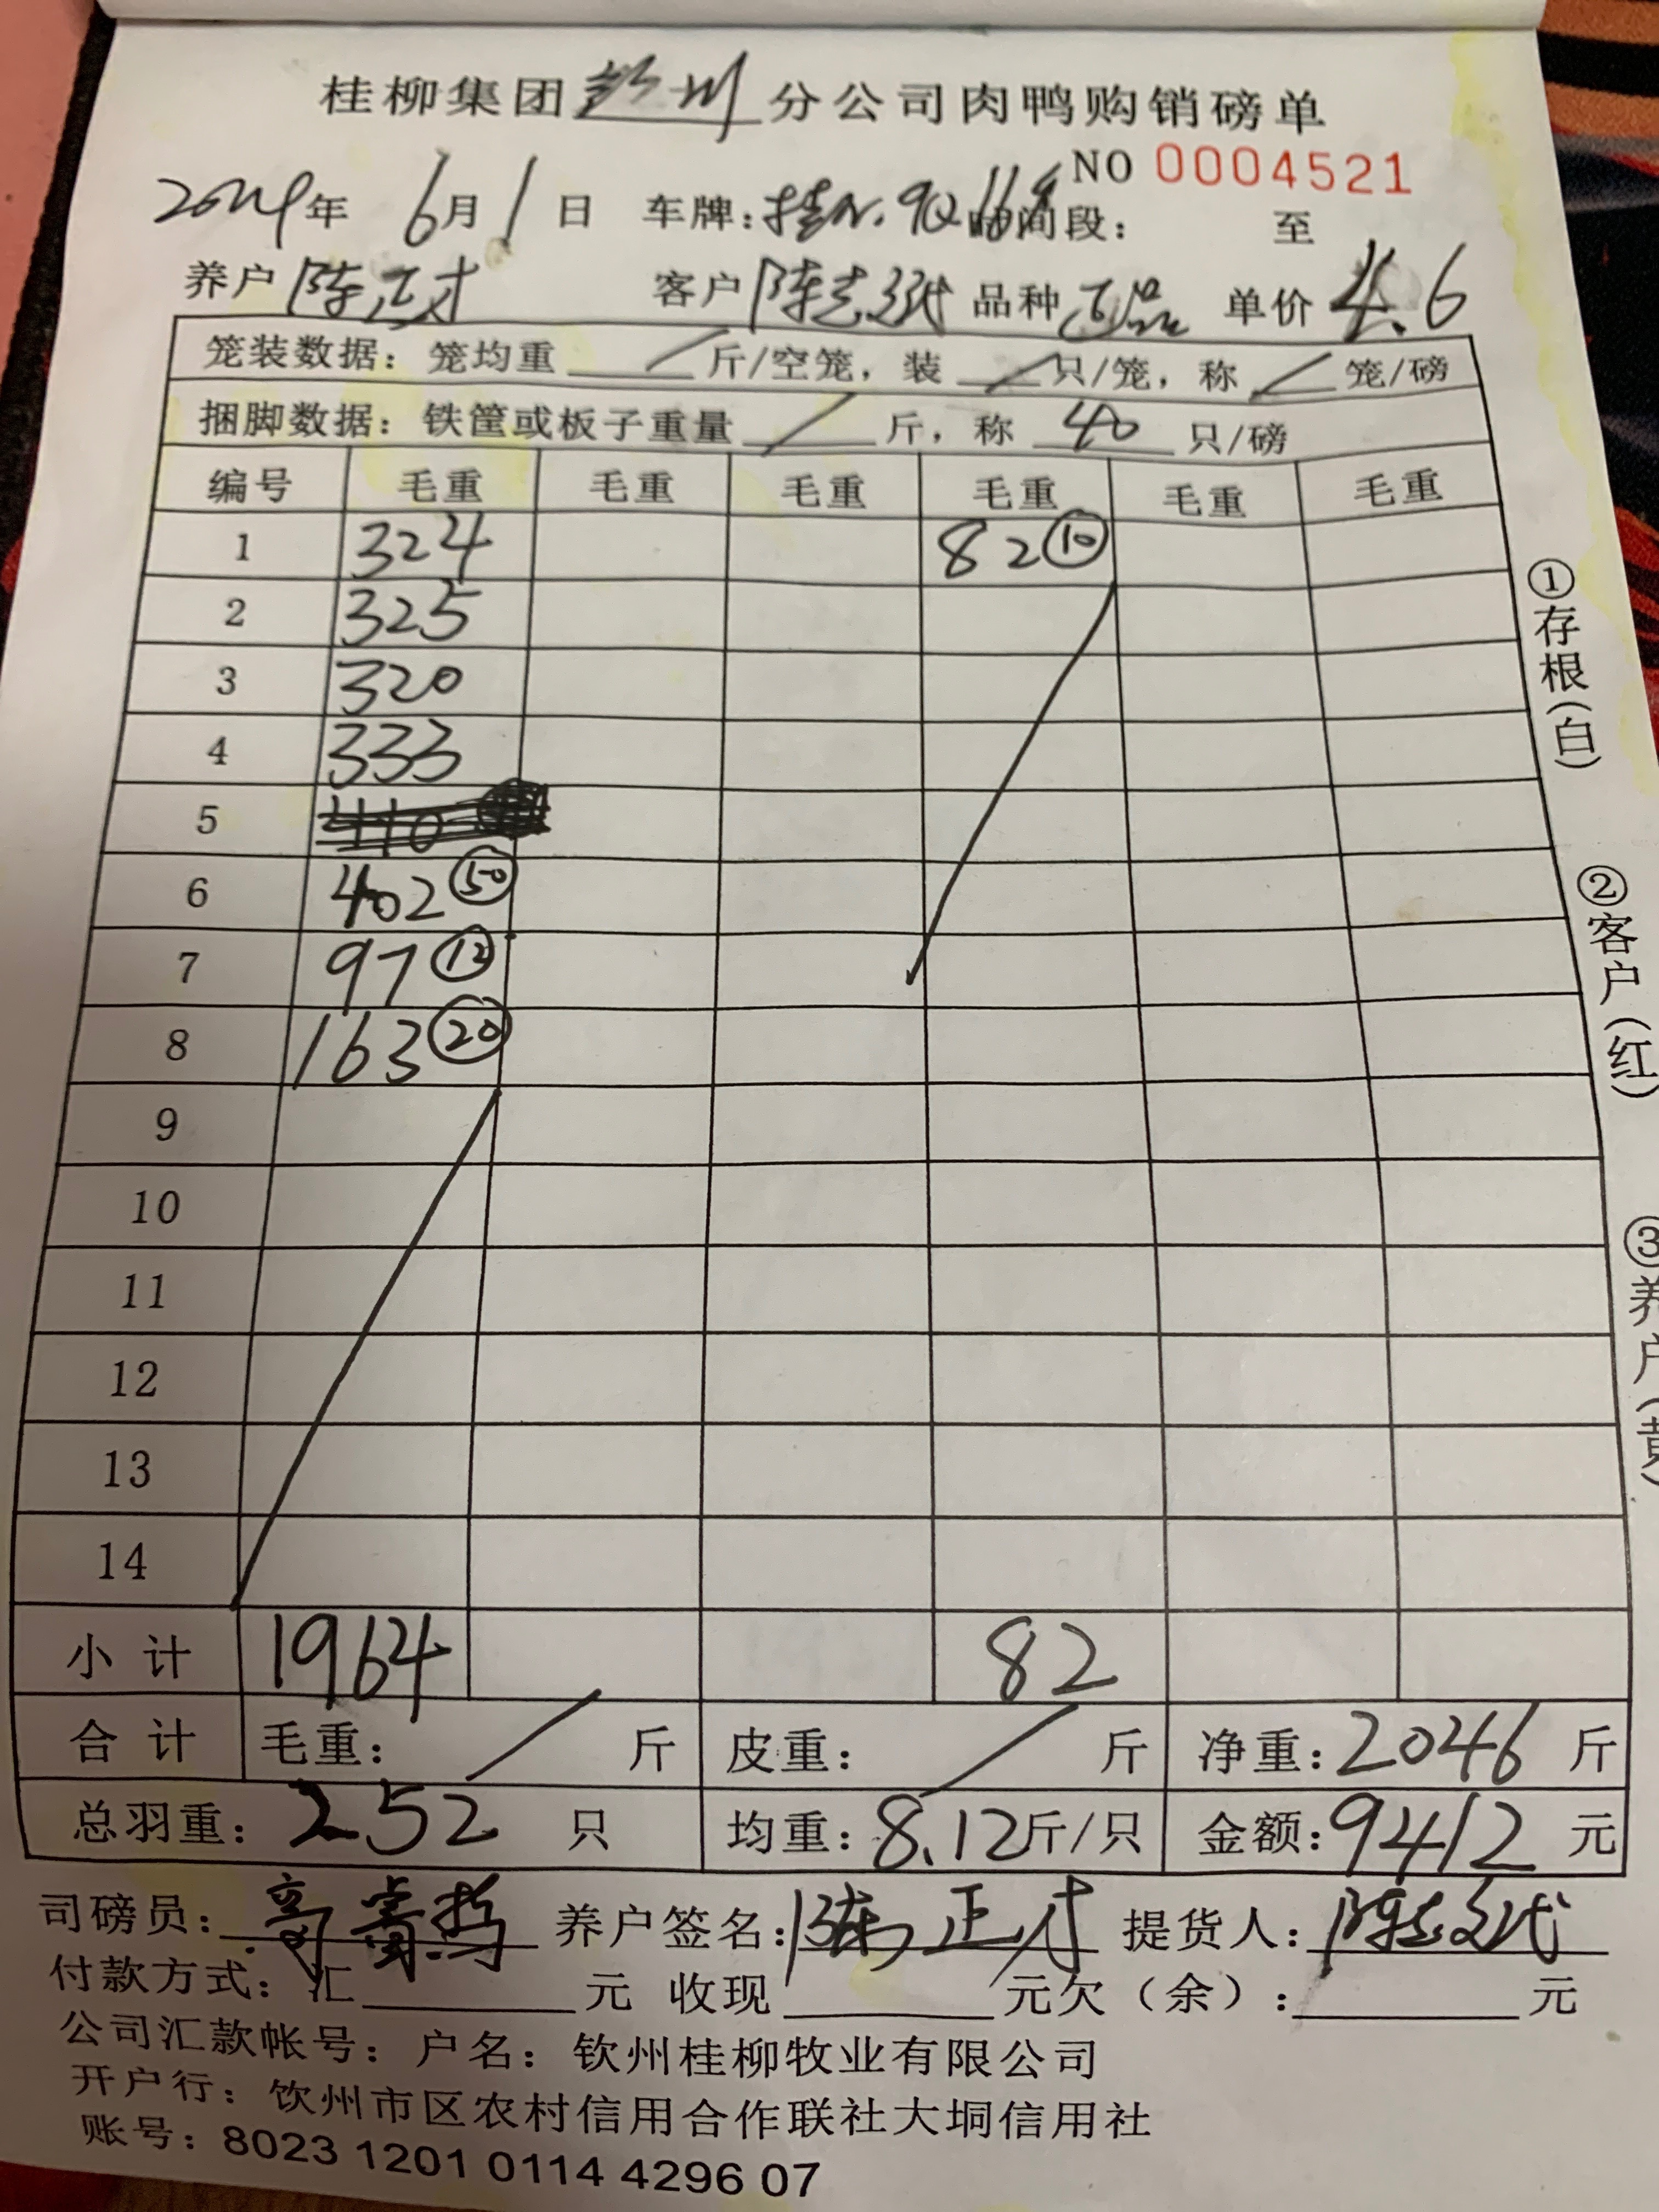 桂柳集团钦州分公司肉鸭购销磅单
NO 0004521
2024年 6月1日 车牌:桂N. 时间段: 至
养户 陈正才 客户 陈志 品种 正品 单价 4.6
笼装数据: 笼均重 / 斤/空笼, 装 / 只/笼, 称 / 笼/磅
捆脚数据: 铁筐或板子重量 / 斤, 称 40 只/磅
编号 毛重 毛重 毛重 毛重 毛重 毛重
1 324 82 ⑩
2 325
3 320
4 333
5
6 402 ㊿
7 97 ⑫
8 163 ⑳
9
10
11
12
13
14
小计 1964 82
合计 毛重: / 斤 皮重: / 斤 净重: 2046 斤
总羽重: 252 只 均重: 8.12斤/只 金额: 9412 元
司磅员: 养户签名: 陈正才 提货人: 陈志
付款方式: 汇______元 收现______元欠(余):______元
公司汇款帐号: 户名: 钦州桂柳牧业有限公司
开户行: 钦州市区农村信用合作联社大垌信用社
账号: 8023 1201 0114 4296 07
①存根(白)
②客户(红)
③养户(黄)